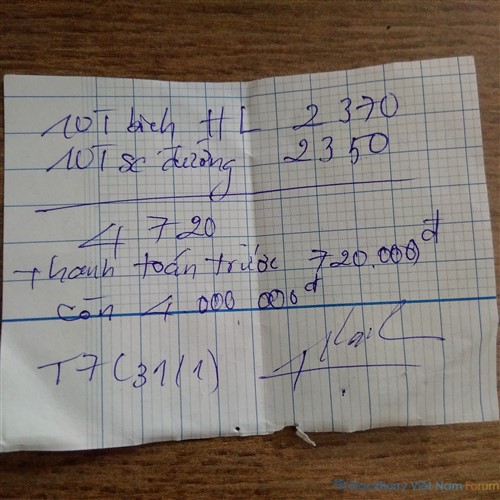 10T bích HL 2 370
10T sc đường 2350
4 720
thanh toán trước 720.000đ
còn 4.000.000đ
T7 (31/1)
Education2 Việt Nam Forum